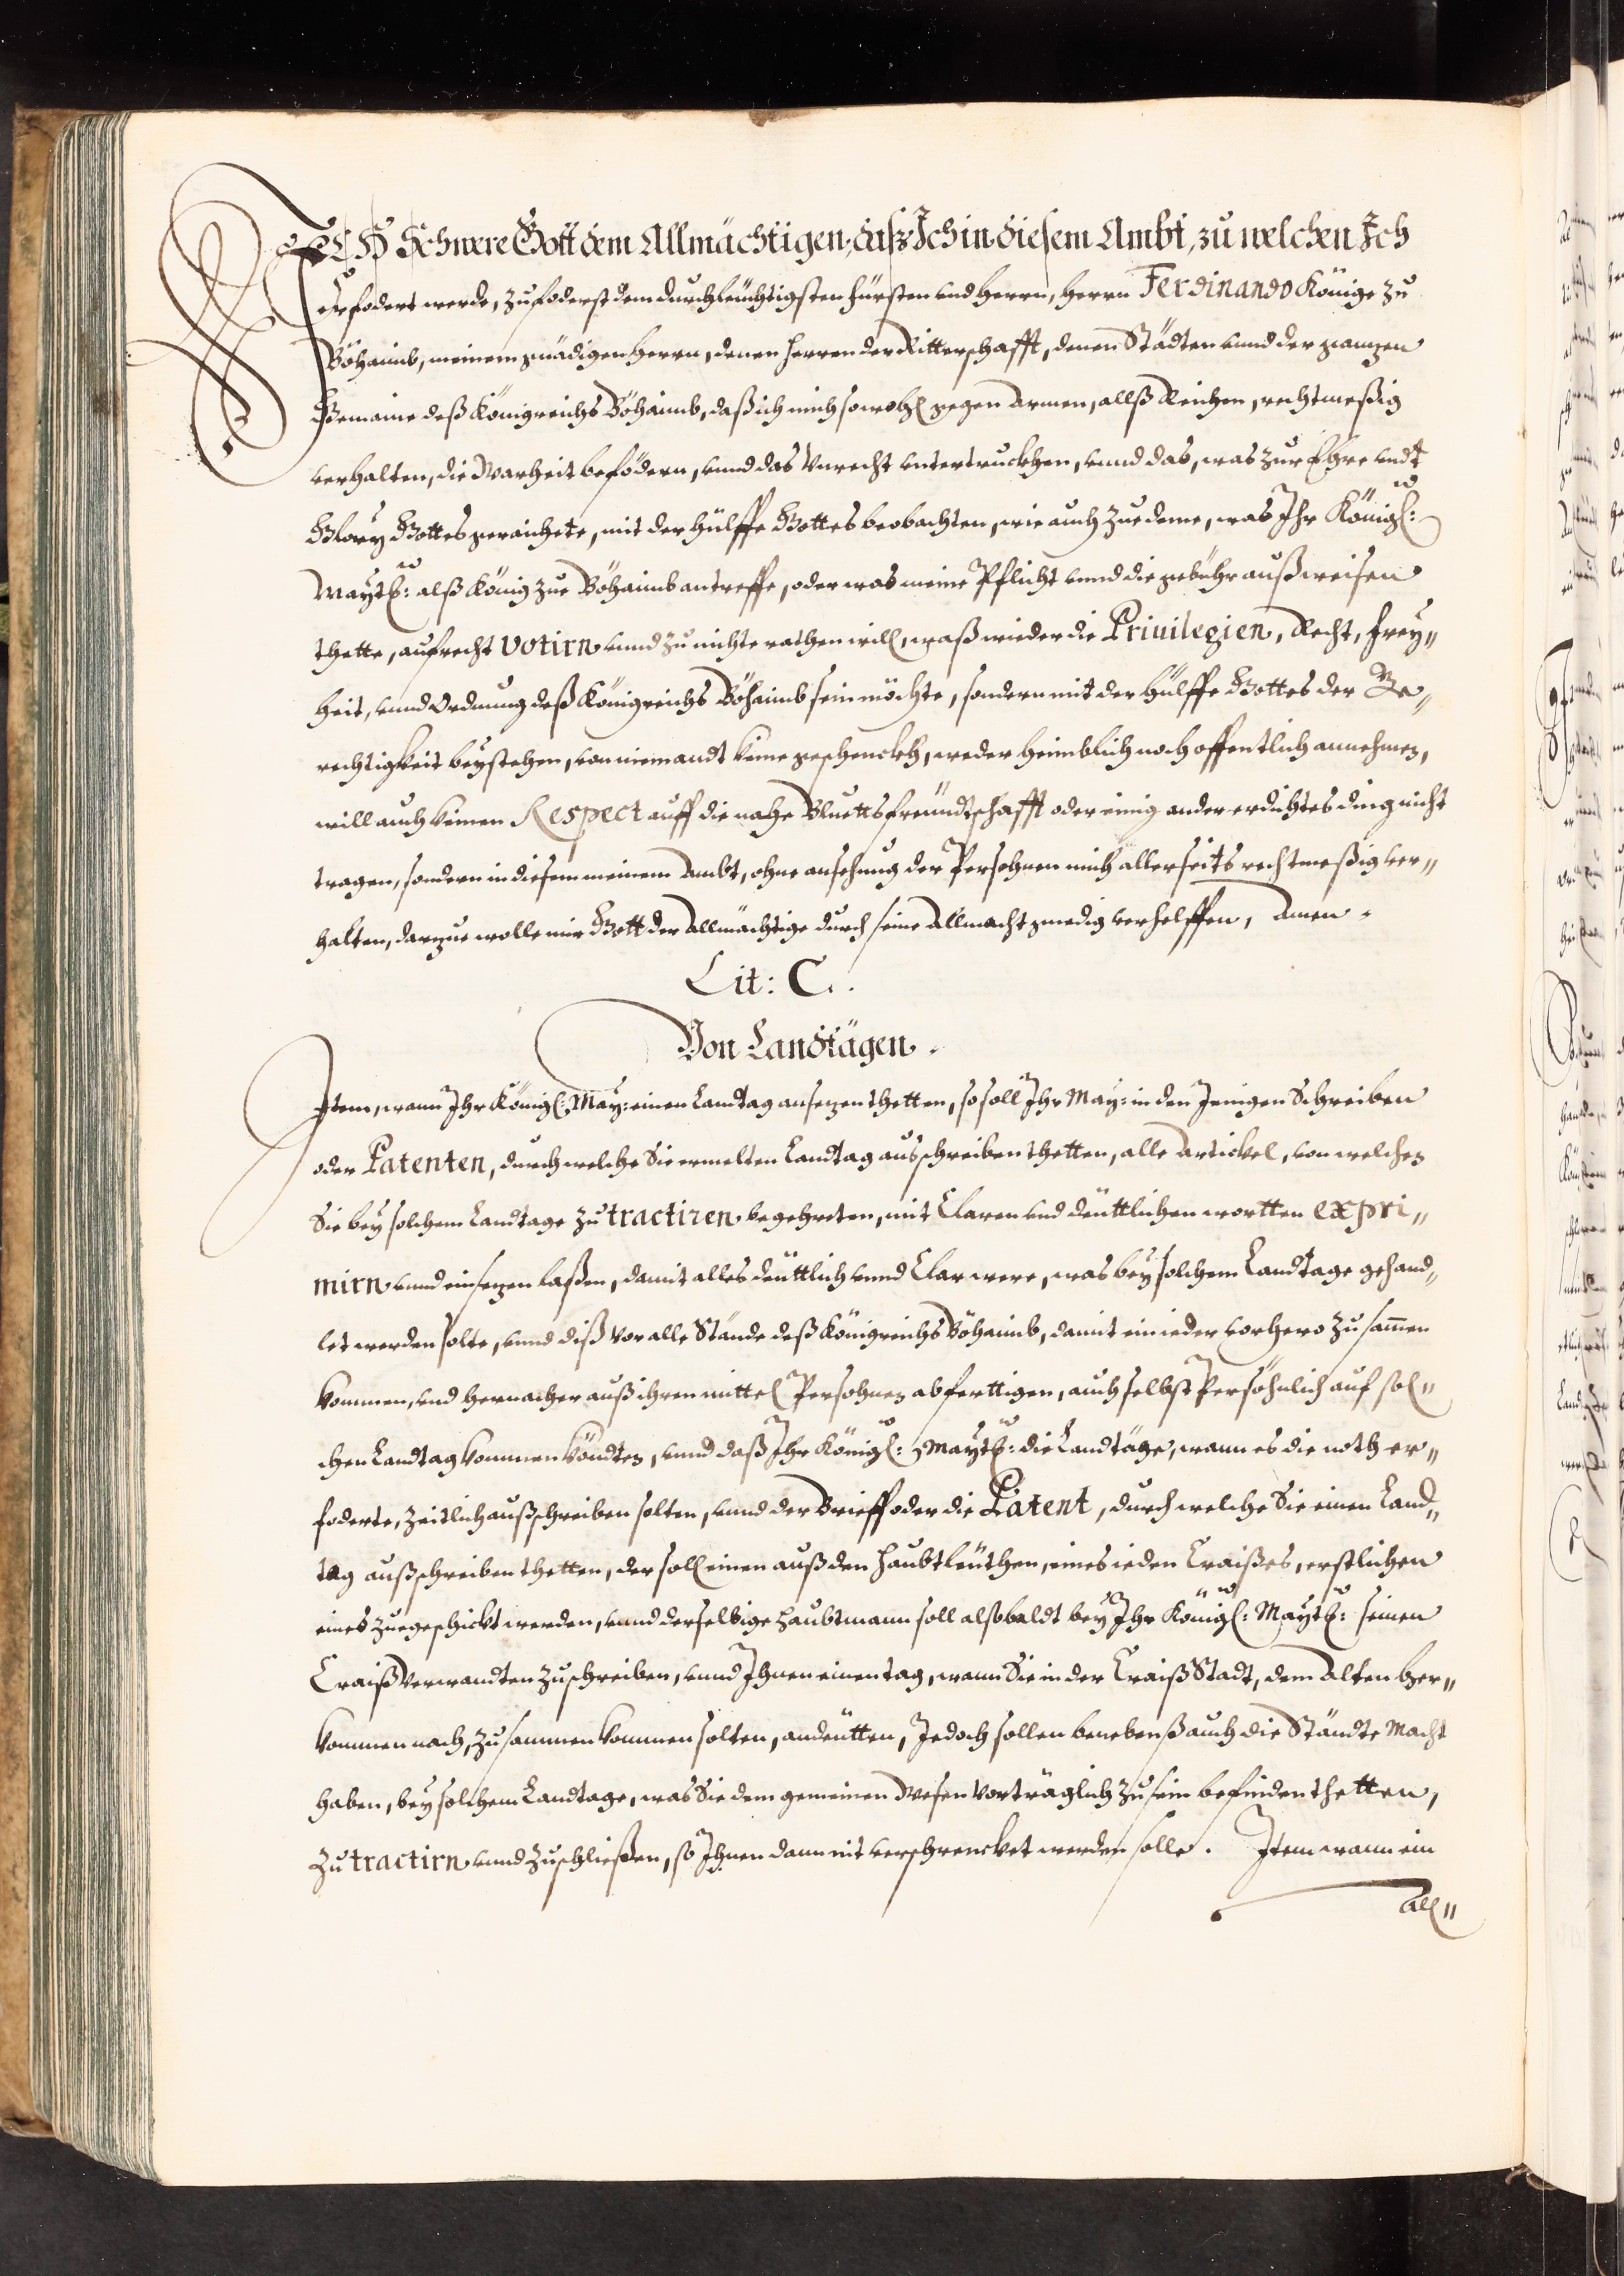 ICH Schwere Gott dem Allmächtigen, daß Ich in diesem Ambt, zu welchen Ich
erfodert werde, zufoderst dem durchleüchtigsten fürsten und Herrn, Herrn Ferdinando Könige zu
Böhaimb, meinem gnädigen Herrn, denen Herren der Ritterschafft, denen Städten unnd der gantzen
Gemaine deß Königreichs Böhaimb, daß ich mich sowohl gegen Armen, allß Reichen, rechtmeßig
verhalten, die Warheit befödern, unnd das Unrecht untertruckhen, unnd das, was zur Ehre undt
Glory Gottes geraichete, mit der Hülffe Gottes beobachten, wie auch zue deme, was Ihr Königl:
Maytt: alß König zue Böhaimb antreffe, oder was meine Pflicht unnd die gebühr außweisen
thette, aufrecht votirn unnd zu nichte rathen will, waß wieder die Privilegien, Recht, Frey„
heit, unnd Ordnung deß Königreichs Böhaimb sein möchte, sondern mit der Hülffe Gottes der Ge„
rechtigkeit beystehen, von niemandt keine geschenckh, weder heimblich noch offentlich annehmen,
will auch keinen Respect auff die nahe Bluettsfreündtschafft oder einig ander erdichtes ding nicht
tragen, sondern in diesem meinem Ambt, ohne ansehung der Persohnen mich allerseits rechtmeßig ver„
halten, darzue wolle mir Gott der Allmächtige durch seine Allmacht gnedig verhelffen, Amen.
Lit: C.
Von Landtägen.
Item, wann Ihr Königl: May: einen Landtag ansezen thetten, so soll Ihr May: in den Jenigen Schreiben
oder Patenten, durch welche Sie ermelten Landtag ausschreiben thetten, alle Artickel, von welchen
Sie bey solchem Landtage zu tractiren begehreten, mit Claren und deüttlichen wortten expri„
mirn unnd einsezen laßen, damit alles deüttlich unnd Clar were, was bey solchem Landtage gehand„
let werden solte, unnd diß vor alle Stände deß Königreichs Böhaimb, damit ein ieder vorhero zusamen
kommen, und hernacher auß ihren mittel Persohnen abferttigen, auch selbst Persöhnlich auf sol„
chen Landtag kommen köndten, unnd daß Ihr Königl: Maytt: die Landtäge, wann es die noth er„
foderte, zeitlich außschreiben solten, unnd der Brieff oder die Patent, durch welche Sie einen Land„
tag außschreiben thetten, der soll einen auß den Haubtleüthen, eines ieden Craißes, erstlichen
eines zuegeschickt werden, unnd derselbige Haubtmann soll alßbaldt bey Ihr Königl: Maytt: seinen
Craiß Verwandten zuschreiben, unnd Ihnen einen tag, wann Sie in der Craiß Stadt, dem Alten her„
kommen nach, zusammen kommen solten, andeütten, Jedoch sollen benebenß auch die Ständte Macht
haben, bey solchem Landtage, was Sie dem gemeinen Wesen vorträglich zu sein befinden thetten,
zu tractirn unnd zuschließen, so Ihnen dann nit verschrencket werden solle. Item wann ein
all„